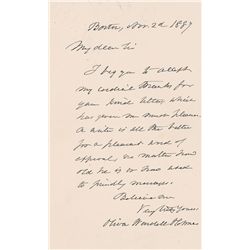 Boston, Nov. 2d 1887
My dear Sir
I beg you to accept
my cordial thanks for
your kind letter which
has given me much pleasure.
A writer is all the better
for a pleasant word of
approval, no matter how
old he is or how used
to friendly messages.
Believe me
Very truly yours,
Oliver Wendell Holmes